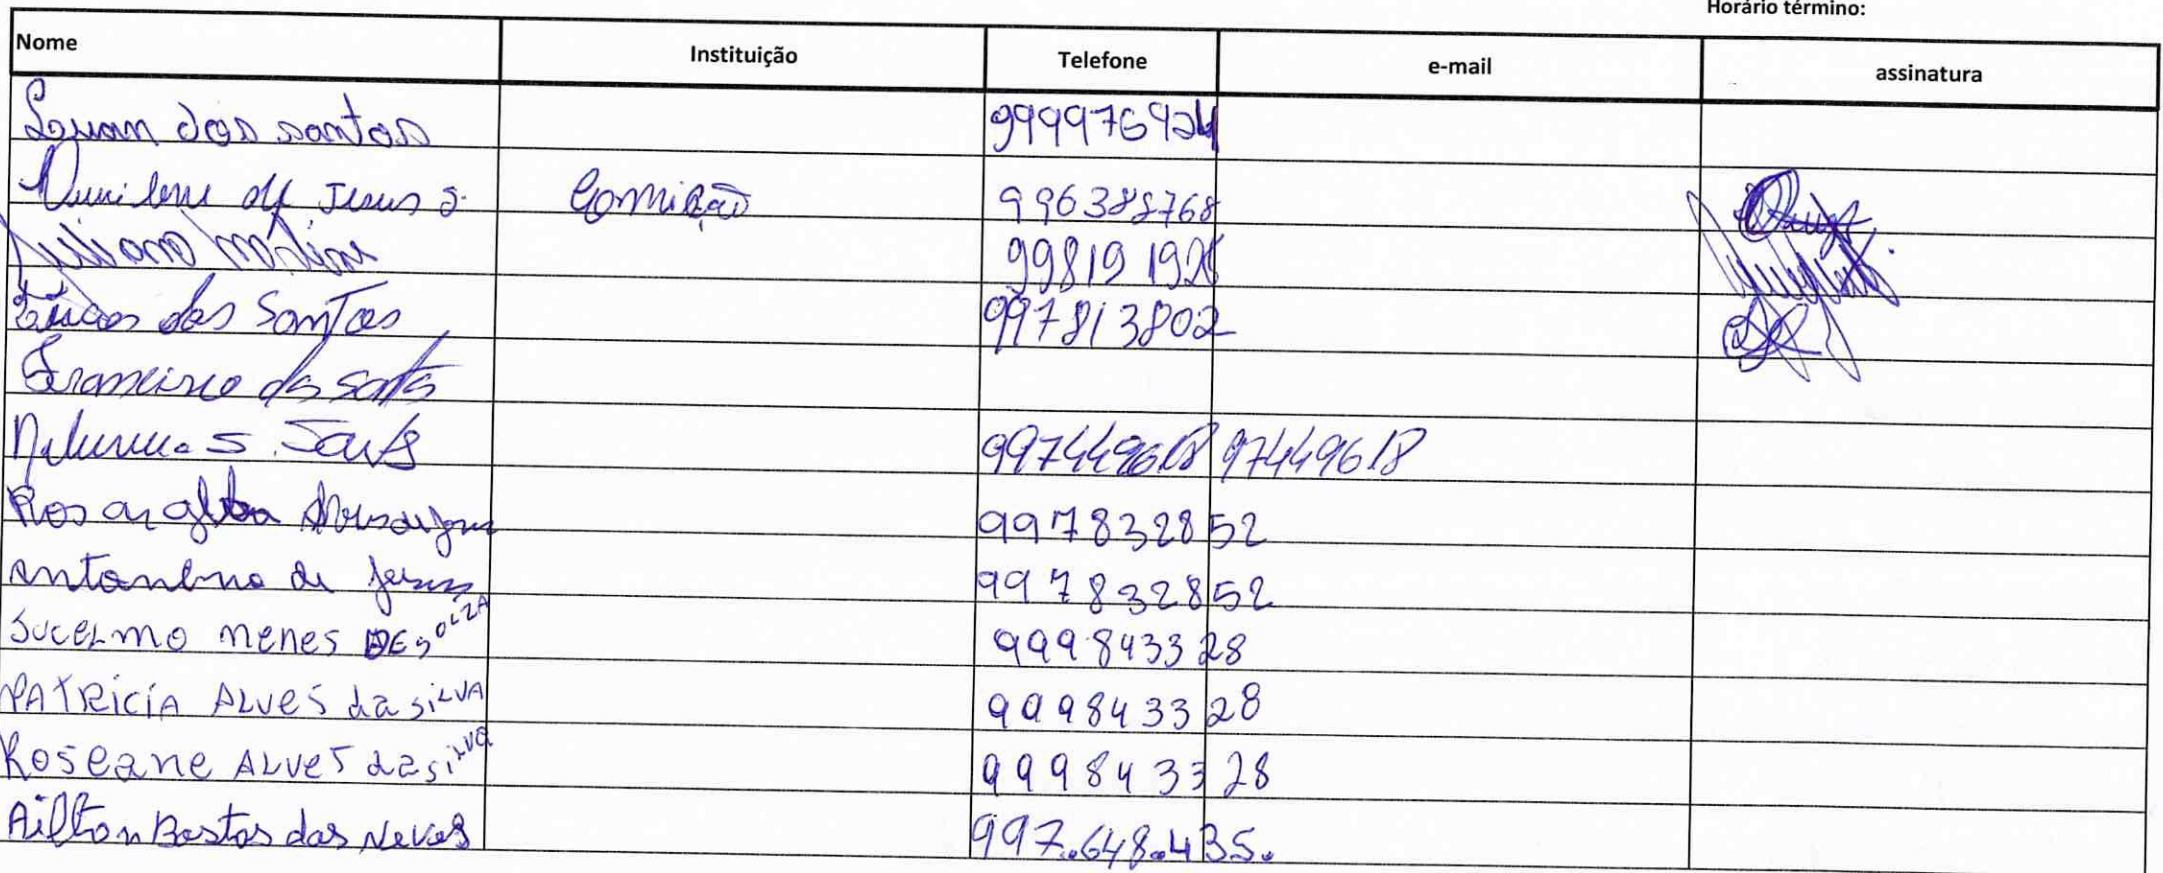 Horário término:
Nome Instituição Telefone e-mail assinatura
Louan dos santos 999976924
de Jesus S. Comição 996388768
Juliano Martins 99819192
dos Santos 997813802
Francisco dos santos
S. 997449618 97449618
Rosangela 997832852
antonino de Jesus 997832852
Jucelmo menes DE SOLZA 999843328
PATRICIA ALVES da SILVA 999843328
Roseane ALVES da silva 999843328
Ailton Bastos das Neves 997.648.435.